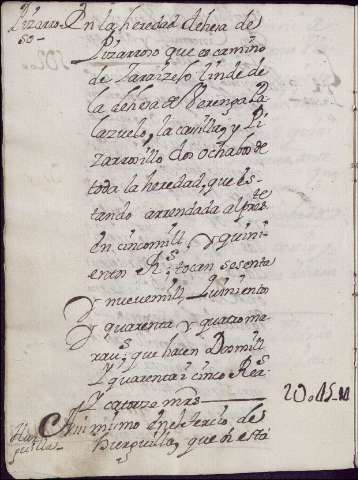 Pizarro-
so-
En la heredad dehesa de
Pizarroso que es camino
de Jaraizejo linde de
la dehesa de Berenga la
lazuelo, la canilla, y Pi
zarrosillo dos ochabas de
toda la heredad, que es-
tando arrendada al preste
en cinco mill, y quini-
entos Rs. tocan sesenta
y nueve mill, quiniento
y quarenta y quatro ma-
raus; que hacen Dos mill
y quarenta i cinco Rers
y catorze mrs
20.45.
mismo en el tercio de
que h está